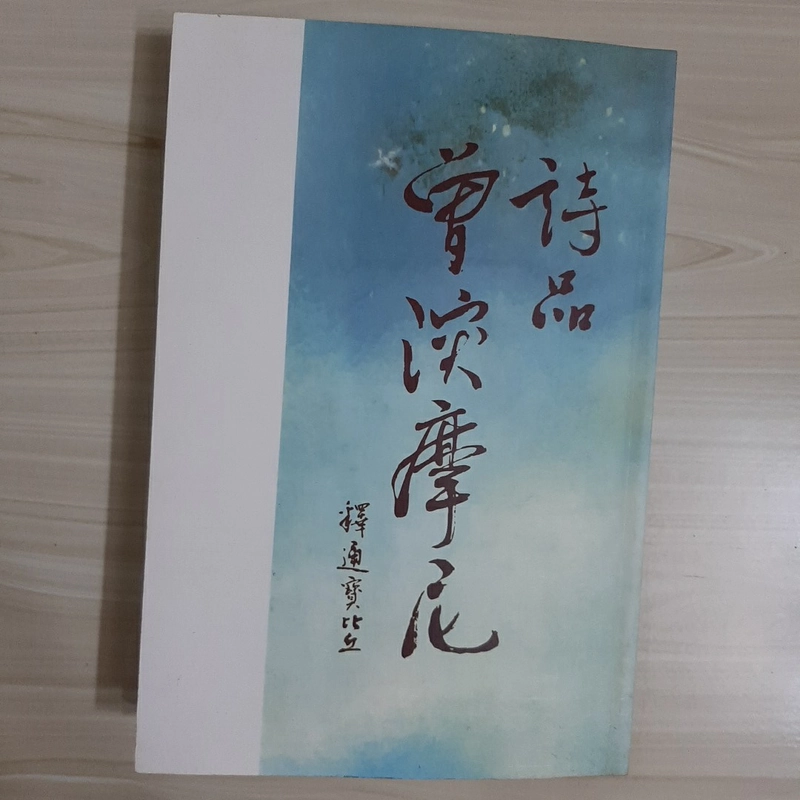 詩品
曾演摩尼
釋通寶比丘